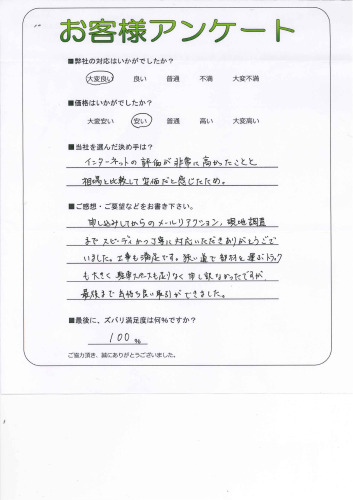 お客様アンケート
■弊社の対応はいかがでしたか？
大変良い 良い 普通 不満 大変不満
■価格はいかがでしたか？
大変安い 安い 普通 高い 大変高い
■当社を選んだ決め手は？
インターネットの評価が非常に高かったことと
相場と比較して安価だと感じたため。
■ご感想・ご要望などをお書き下さい。
申し込みしてからのメールリアクション，現地調査
までスピーディかつ丁寧に対応いただきありがとうござ
いました。工事も満足です。狭い道で部材を運ぶトラック
も大きく駐車スペースも足りなく申し訳なかったですが
最後まで気持ち良い取引ができました。
■最後に、ズバリ満足度は何％ですか？
100 ％
ご協力頂き、誠にありがとうございました。